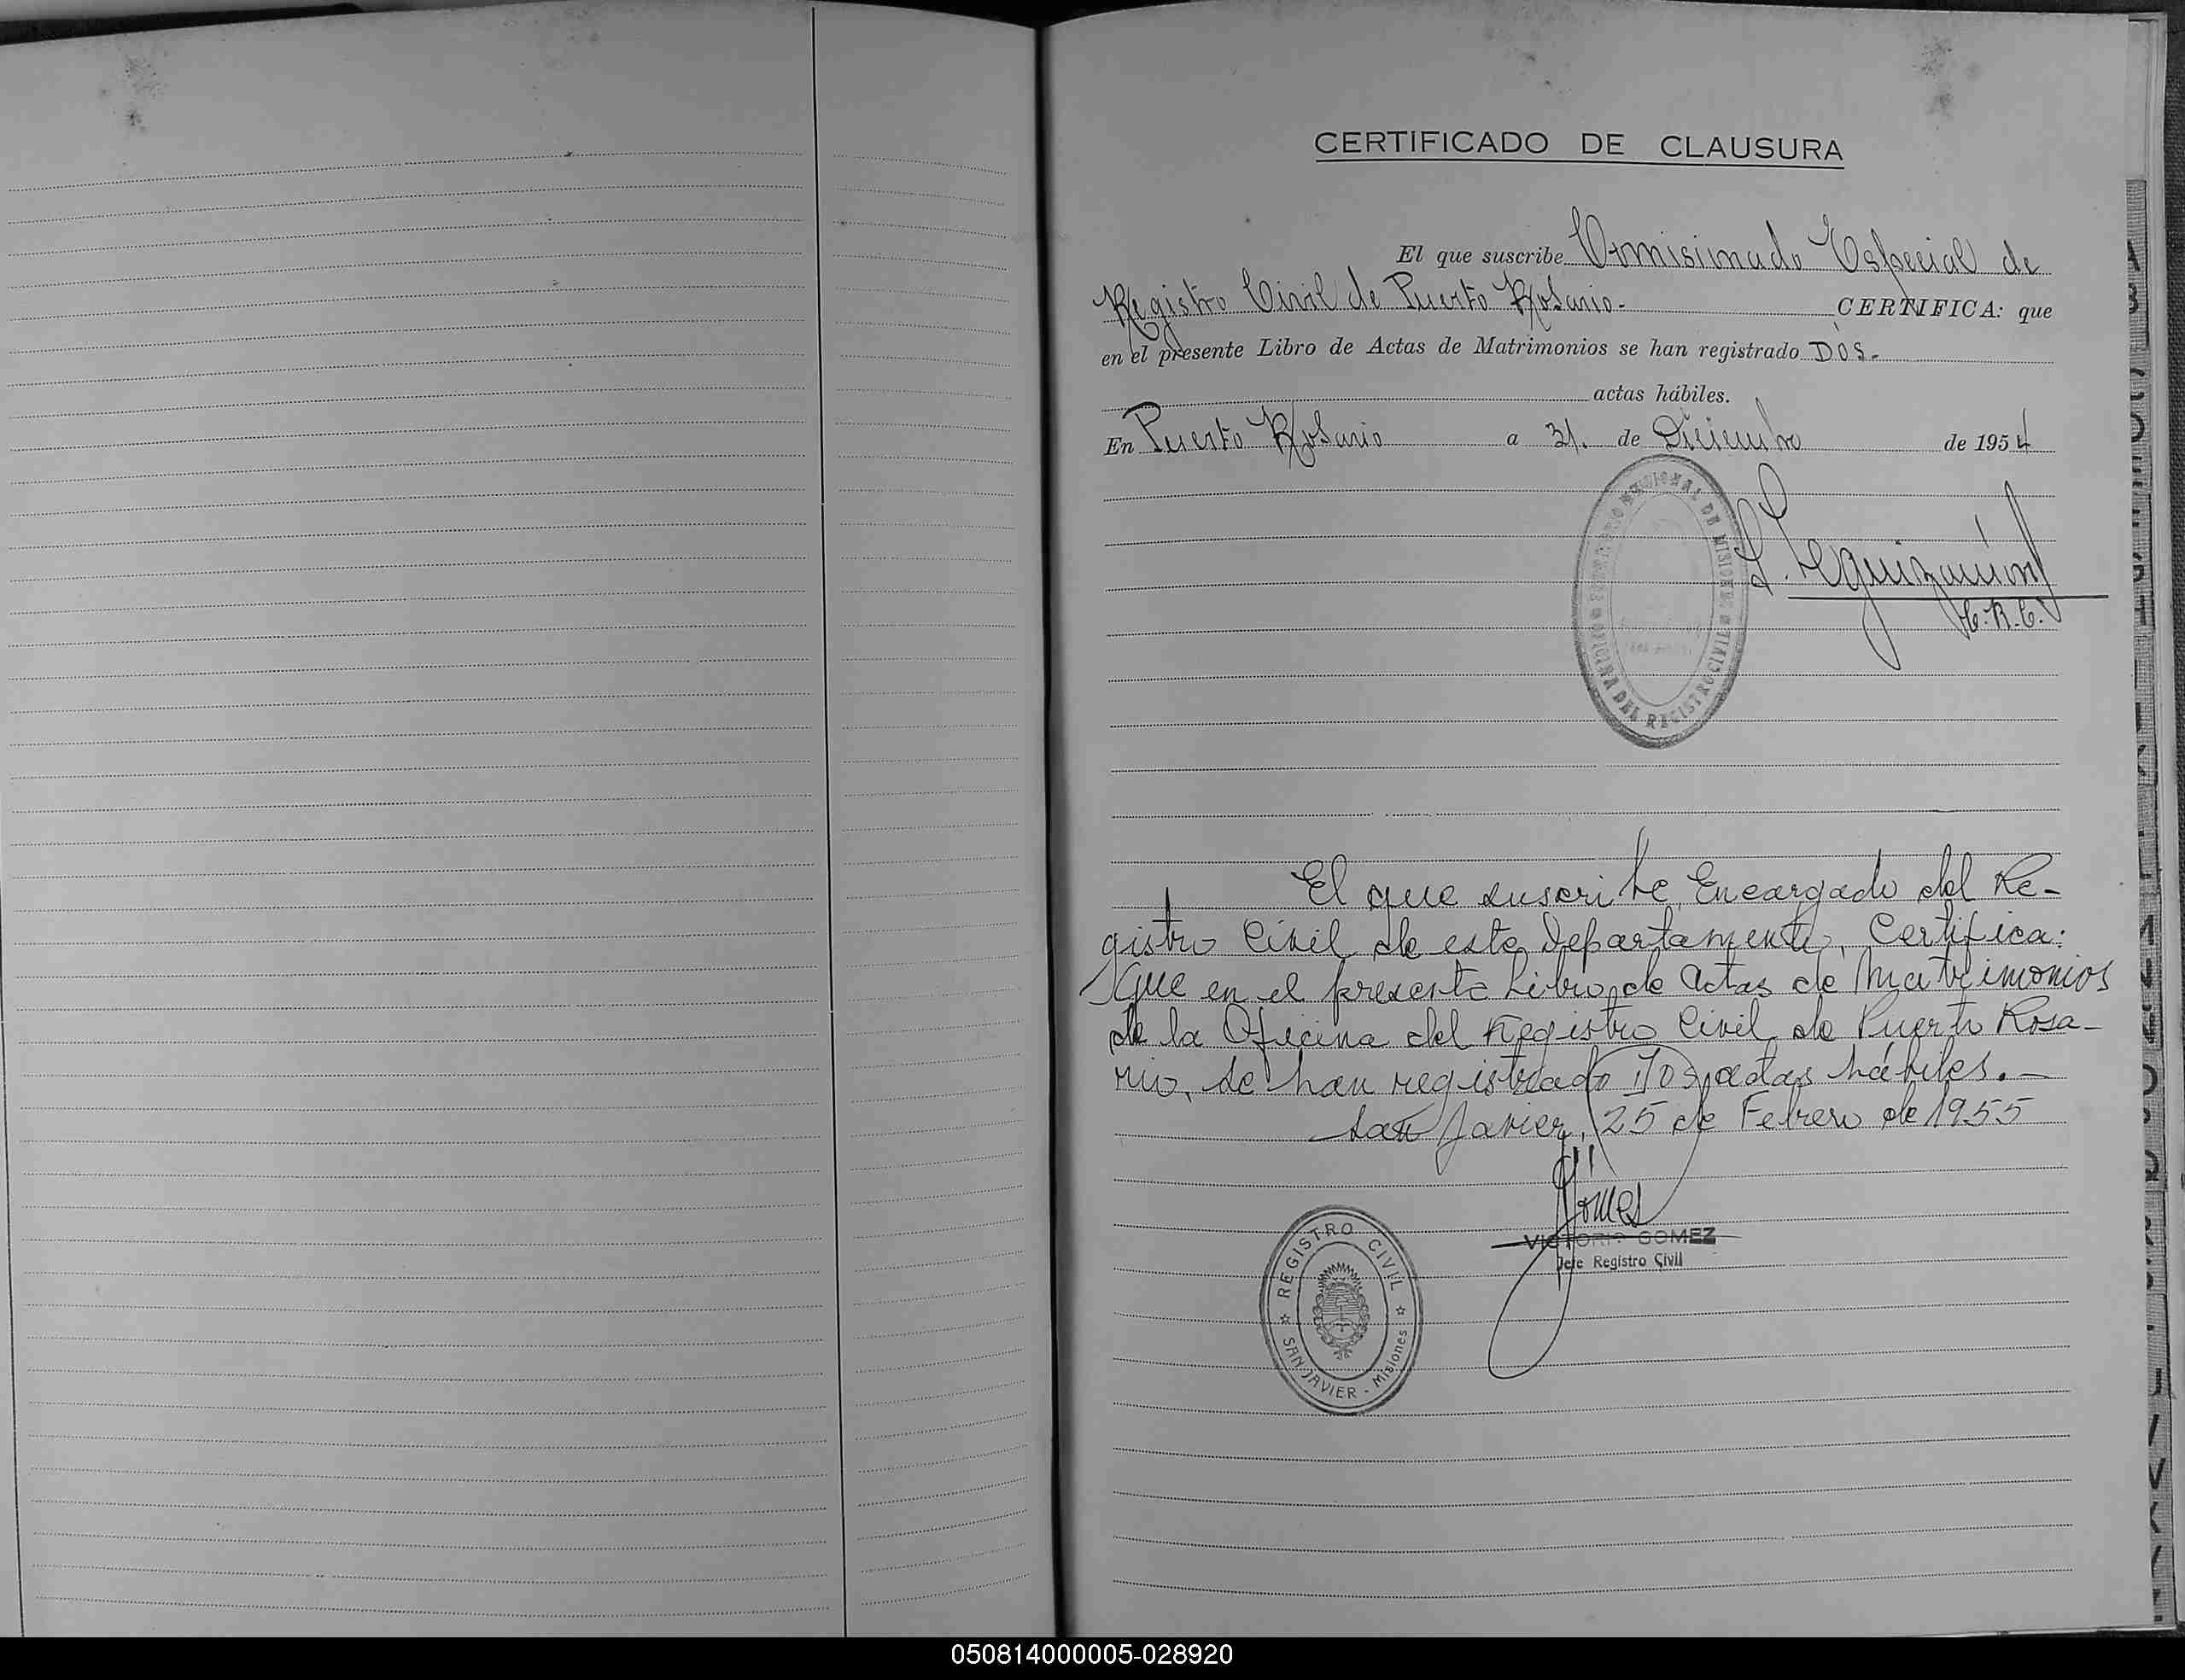 CERTIFICADO DE CLAUSURA
El que suscribe Comisionado Especial de
Registro Civil de Puerto Rosario.- CERTIFICA: que
en el presente Libro de Actas de Matrimonios se han registrado DOS.-
actas hábiles.
En Puerto Rosario a 31. de Diciembre de 1954
L. Leguizamón
C.R.C.
NACIONAL DE MISIONES
OFICINA DEL REGISTRO CIVIL
El que suscribe, Encargado del Re-
gistro Civil de este Departamento, Certifica:
que en el presente Libro de Actas de Matrimonios
de la Oficina del Registro Civil de Puerto Rosa-
rio, se han registrado Dos actas hábiles.-
San Javier, 25 de Febrero de 1955
Gomez
VICTORIO GOMEZ
Jefe Registro Civil
REGISTRO CIVIL
SAN JAVIER - Misiones
050814000005-028920